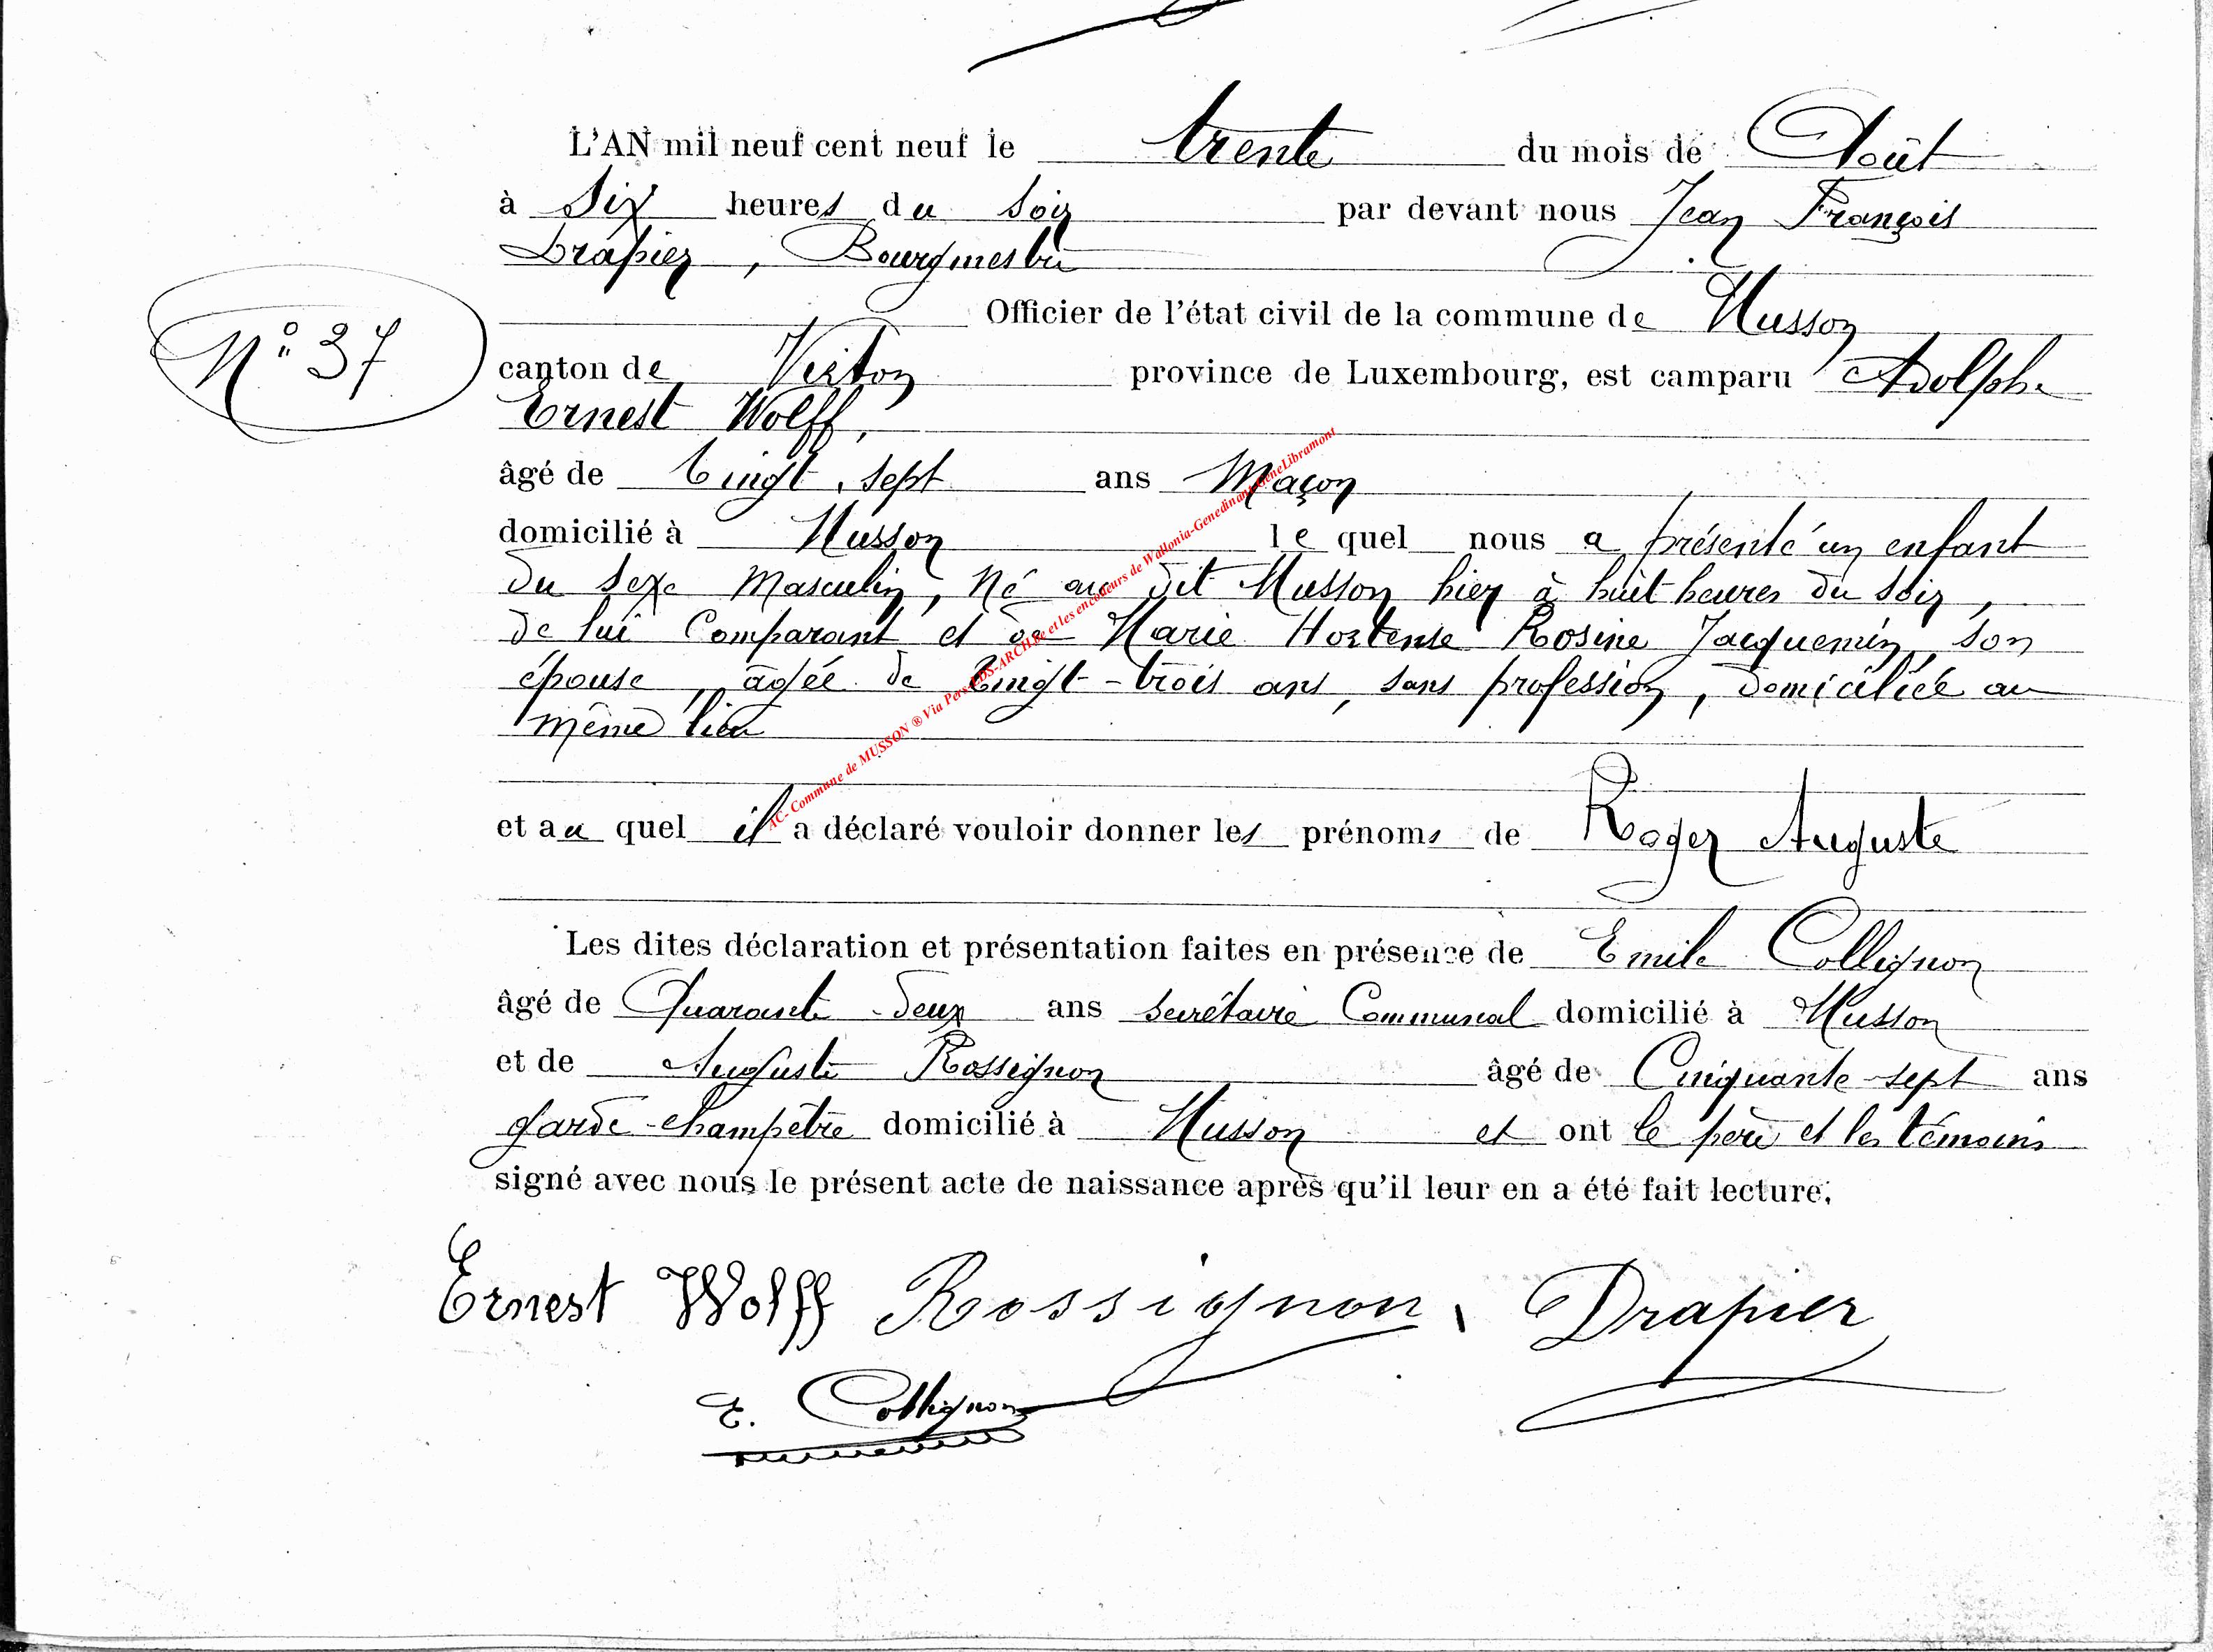 L'AN mil neuf cent neuf le trente du mois de Août
à Six heures du soir par devant nous Jean François
Drapier, Bourgmestre
Officier de l'état civil de la commune de Musson
N° 37
canton de Virton province de Luxembourg, est camparu Adolphe
Ernest Wolff,
âgé de Vingt-sept ans Maçon
domicilié à Musson le quel nous a présenté un enfant
du sexe Masculin, Né au dit Musson hier à huit heures du soir,
de lui Comparant et de Marie Hortense Rosine Jacquemin, son
épouse, agée de Vingt-trois ans, sans profession, domiciliée au
même lieu
et au quel il a déclaré vouloir donner les prénoms de Roger Auguste
Les dites déclaration et présentation faites en présence de Emile Collignon
âgé de Quarante-deux ans secrétaire Communal domicilié à Musson
et de Auguste Rossignon âgé de Cinquante-sept ans
garde-champêtre domicilié à Musson et ont le père et les témoins
signé avec nous le présent acte de naissance après qu'il leur en a été fait lecture.
Ernest Wolff Rossignon, Drapier
E. Collignon
AC- Commune de MUSSON ® Via Pers-LDS-ARCH.be et les encodeurs de Wallonia-Genedinant-GeneLibramont